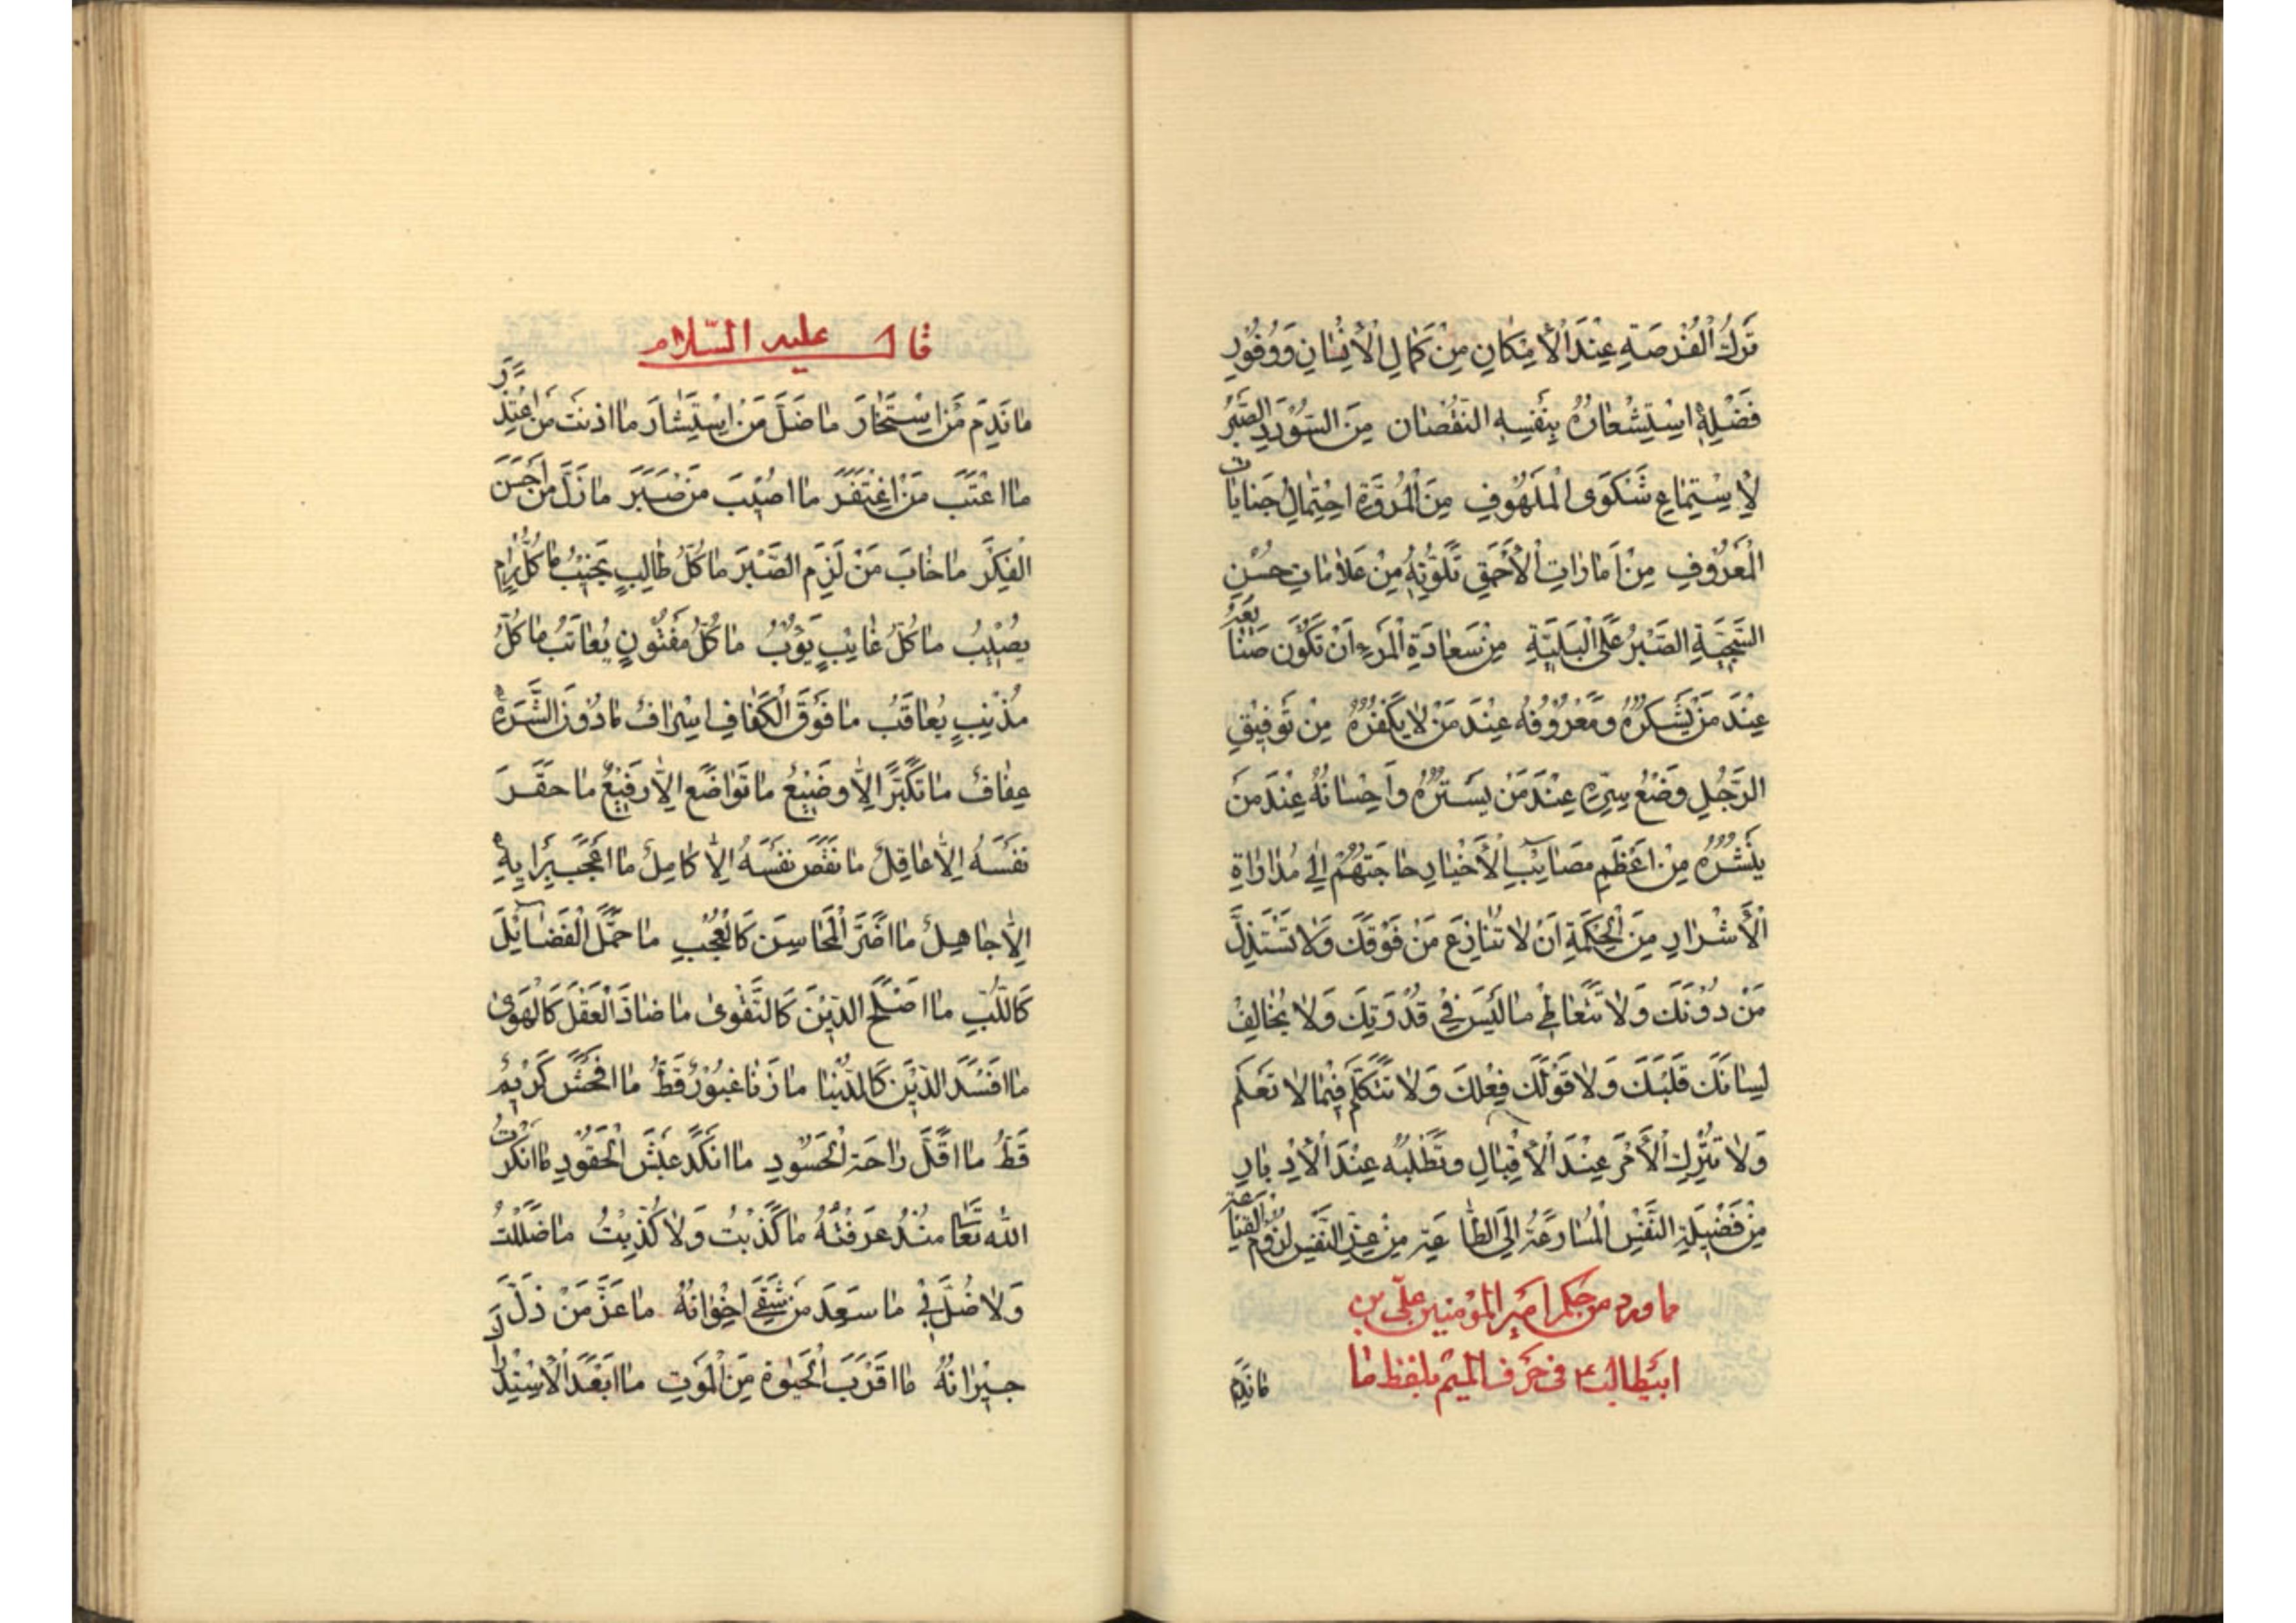 تَرْكُ الْفُرْصَةِ عِنْدَ الْأِمْكَانِ مِنْ كَمَالِ الْأِنْسَانِ وَوُفُورِ
فَضْلِهِ اسْتِشْعَارُهُ بِنَفْسِهِ النُّقْصَان مِنَ السُّؤْدَدِ الصَّبْرُ
لِأِسْتِمَاعِ شَكْوَى الْمَلْهُوفِ مِنَ الْمُرُوَّةِ احْتِمَالُ جَنَايَاتِ
الْمَعْرُوفِ مِنْ اَمَارَاتِ الْأَحْمَقِ تَلَوُّنُهُ مِنْ عَلَامَاتِ حُسْنِ
السَّجِيَّةِ الصَّبْرُ عَلَى الْبَلِيَّةِ مِنْ سَعَادَةِ الْمَرْءِ اَنْ تَكُونَ صَنَائِعُهُ
عِنْدَ مَنْ يَشْكُرُهُ وَمَعْرُوفُهُ عِنْدَ مَنْ لَا يَكْفُرُهُ مِنْ تَوْفِيْقِ
الرَّجُلِ وَضْعُ سِرِّهِ عِنْدَ مَنْ يَسْتُرُهُ وَاَحِسْانُهُ عِنْدَ مَنْ
يَنْشُرُهُ مِنْ اَعْظَمِ مَصَائِبِ الْأَخْيَارِ حَاجَتُهُمْ اِلَى مُدَارَاةِ
الْأَشْرَارِ مِنَ الْحِكْمَةِ اَنْ لَا تُنَازِعَ مَنْ فَوْقَكَ وَلَا تَسْتَذِلَّ
مَنْ دُوْنَكَ وَلَا تَتَعَاطَى مَا لَيْسَ فِي قُدْرَتِكَ وَلَا يُخَالِفْ
لِسَانُكَ قَلْبَكَ وَلَا قَوْلُكَ فِعْلَكَ وَلَا تَتَكَلَّمْ فِيْمَا لَا تَعْلَمُ
وَلَا تَتْرُكِ الْأَمْرَ عِنْدَ الْأِقْبَالِ وَتَطْلُبُهُ عِنْدَ الْأِدْبَارِ
مِنْ فَضِيْلَةِ النَّفْسِ الْمُسَارَعَةُ اِلَى الطَّاعَةِ مِنْ عِزِّ النَّفْسِ لُزُومُ الْقَنَاعَةِ
ما ورد من حكم امير المؤمنين علي بن
ابيطالب ع في حرف الميم بلفظ ما
مَا نَدِمَ
قال عليه السّلام
مَا نَدِمَ مَنِ اسْتَخَارَ مَا ضَلَّ مَنِ اسْتَشَارَ مَا اذنَبَ مَنِ اعْتَذَرَ
مَا اعْتَبَ مَنْ اغْتَفَرَ مَا اصُيْبَ مَنْ صَبَرَ مَا زَلَّ مَنْ اَحْسَنَ
الْفِكْرَ مَا خَابَ مَنْ لَزِمَ الصَّبْرَ مَا كُلُّ طَالِبٍ يَخِيْبُ مَا كُلُّ رَامٍ
يُصِيْبُ مَا كُلُّ غَايِبٍ يَؤُبُ مَا كُلُّ مَفْتُونٍ يُعَاتَبُ مَا كُلُّ
مُذْنِبٍ يُعَاقَبُ مَا فَوْقَ الْكَفَافِ اِسْرَافٌ مَا دُوْنَ الشَّرَهِ
عِفَافٌ مَا تَكَبَّرَ اِلَّا وَضِيْعٌ مَا تَوَاضَعَ اِلَّا رَفِيْعٌ مَا حَقَّرَ
نَفْسَهُ اِلَّا عَاقِلٌ مَا نَقَصَ نَفْسَهُ اِلَّا كَامِلٌ مَا اَعْجَبَ بِرَايِهِ
اِلَّا جَاهِلٌ مَا اَضَرَّ الْمَحَاسِنَ كَالْعُجْبِ مَا جَمَّلَ الْفَضَائِلَ
كَاللُّبِّ مَا اَصْلَحَ الدِّيْنَ كَالتَّقْوىٰ مَا ضَادَّ الْعَقْلَ كَالْهَوىٰ
مَا اَفْسَدَ الدِّيْنَ كَالدُّنْيَا مَا زَنَا غَيُوْرٌ قَطُّ مَا اَفْحَشَ كَرِيْمٌ
قَطُّ مَا اَقَلَّ رَاحَةَ الْحَسُودِ مَا اَنْكَدَ عَيْشَ الْحَقُوْدِ مَا اَنْكَرْتُ
اللهَ تَعَا مُنْذُ عَرَفْتُهُ مَا كَذَبْتُ وَلَا كُذِبْتُ مَا ضَلَلْتُ
وَلَا ضُلَّ بِيْ مَا سَعِدَ مَنْ شَقِيَ اِخْوَانُهُ مَا عَزَّ مَنْ ذَلَّ
جِيْرَانُهُ مَا اَقْرَبَ الْحَيٰوةَ مِنَ الْمَوْتِ مَا اَبْعَدَ الْاِسْتِدْرَاكَ